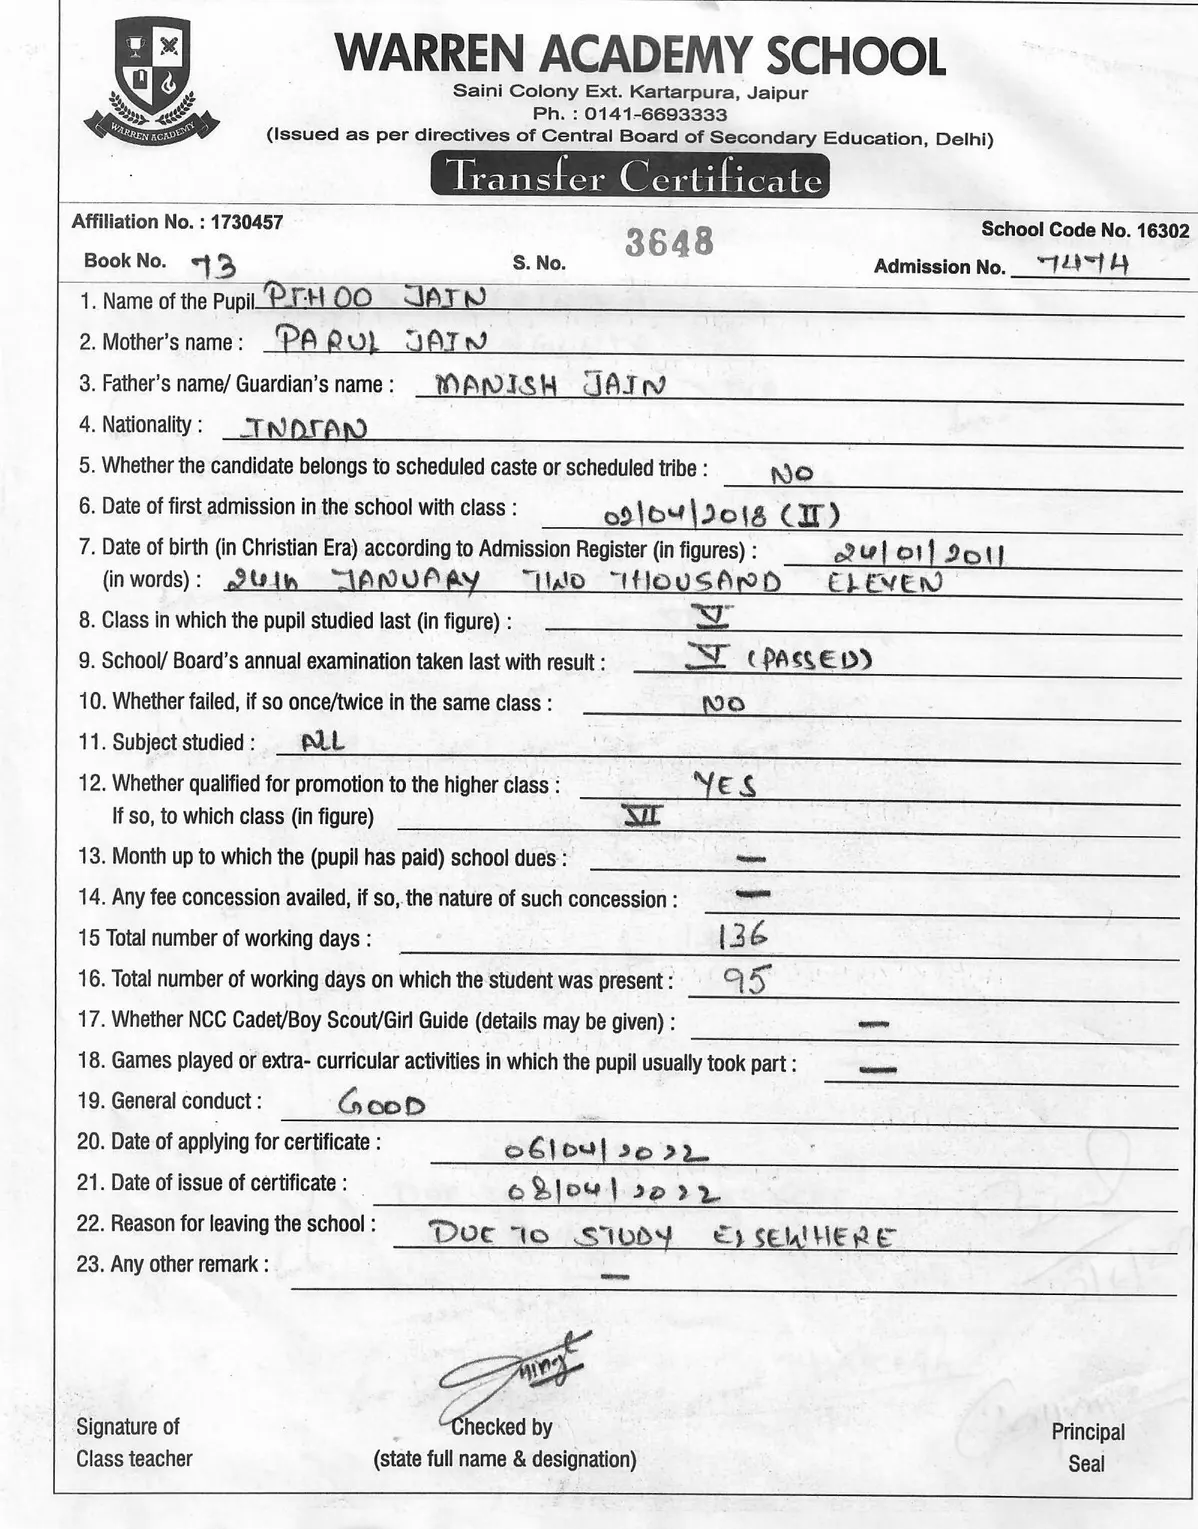 WARREN ACADEMY
WARREN ACADEMY SCHOOL
Saini Colony Ext. Kartarpura, Jaipur
Ph. : 0141-6693333
(Issued as per directives of Central Board of Secondary Education, Delhi)
Transfer Certificate
Affiliation No. : 1730457
School Code No. 16302
Book No. 73 S. No. 3648 Admission No. 7474
1. Name of the Pupil PIHOO JAIN
2. Mother's name : PARUL JAIN
3. Father's name/ Guardian's name : MANISH JAIN
4. Nationality : INDIAN
5. Whether the candidate belongs to scheduled caste or scheduled tribe : NO
6. Date of first admission in the school with class : 02/04/2018 (II)
7. Date of birth (in Christian Era) according to Admission Register (in figures) : 24/01/2011
(in words) : 24th JANUARY TWO THOUSAND ELEVEN
8. Class in which the pupil studied last (in figure) : VI
9. School/ Board's annual examination taken last with result : VI (PASSED)
10. Whether failed, if so once/twice in the same class : NO
11. Subject studied : ALL
12. Whether qualified for promotion to the higher class : YES
If so, to which class (in figure) VII
13. Month up to which the (pupil has paid) school dues : —
14. Any fee concession availed, if so, the nature of such concession : —
15 Total number of working days : 136
16. Total number of working days on which the student was present : 95
17. Whether NCC Cadet/Boy Scout/Girl Guide (details may be given) : —
18. Games played or extra- curricular activities in which the pupil usually took part : —
19. General conduct : GOOD
20. Date of applying for certificate : 06/04/2022
21. Date of issue of certificate : 08/04/2022
22. Reason for leaving the school : DUE TO STUDY ELSEWHERE
23. Any other remark : —
Signature of
Class teacher
Checked by
(state full name & designation)
Principal
Seal